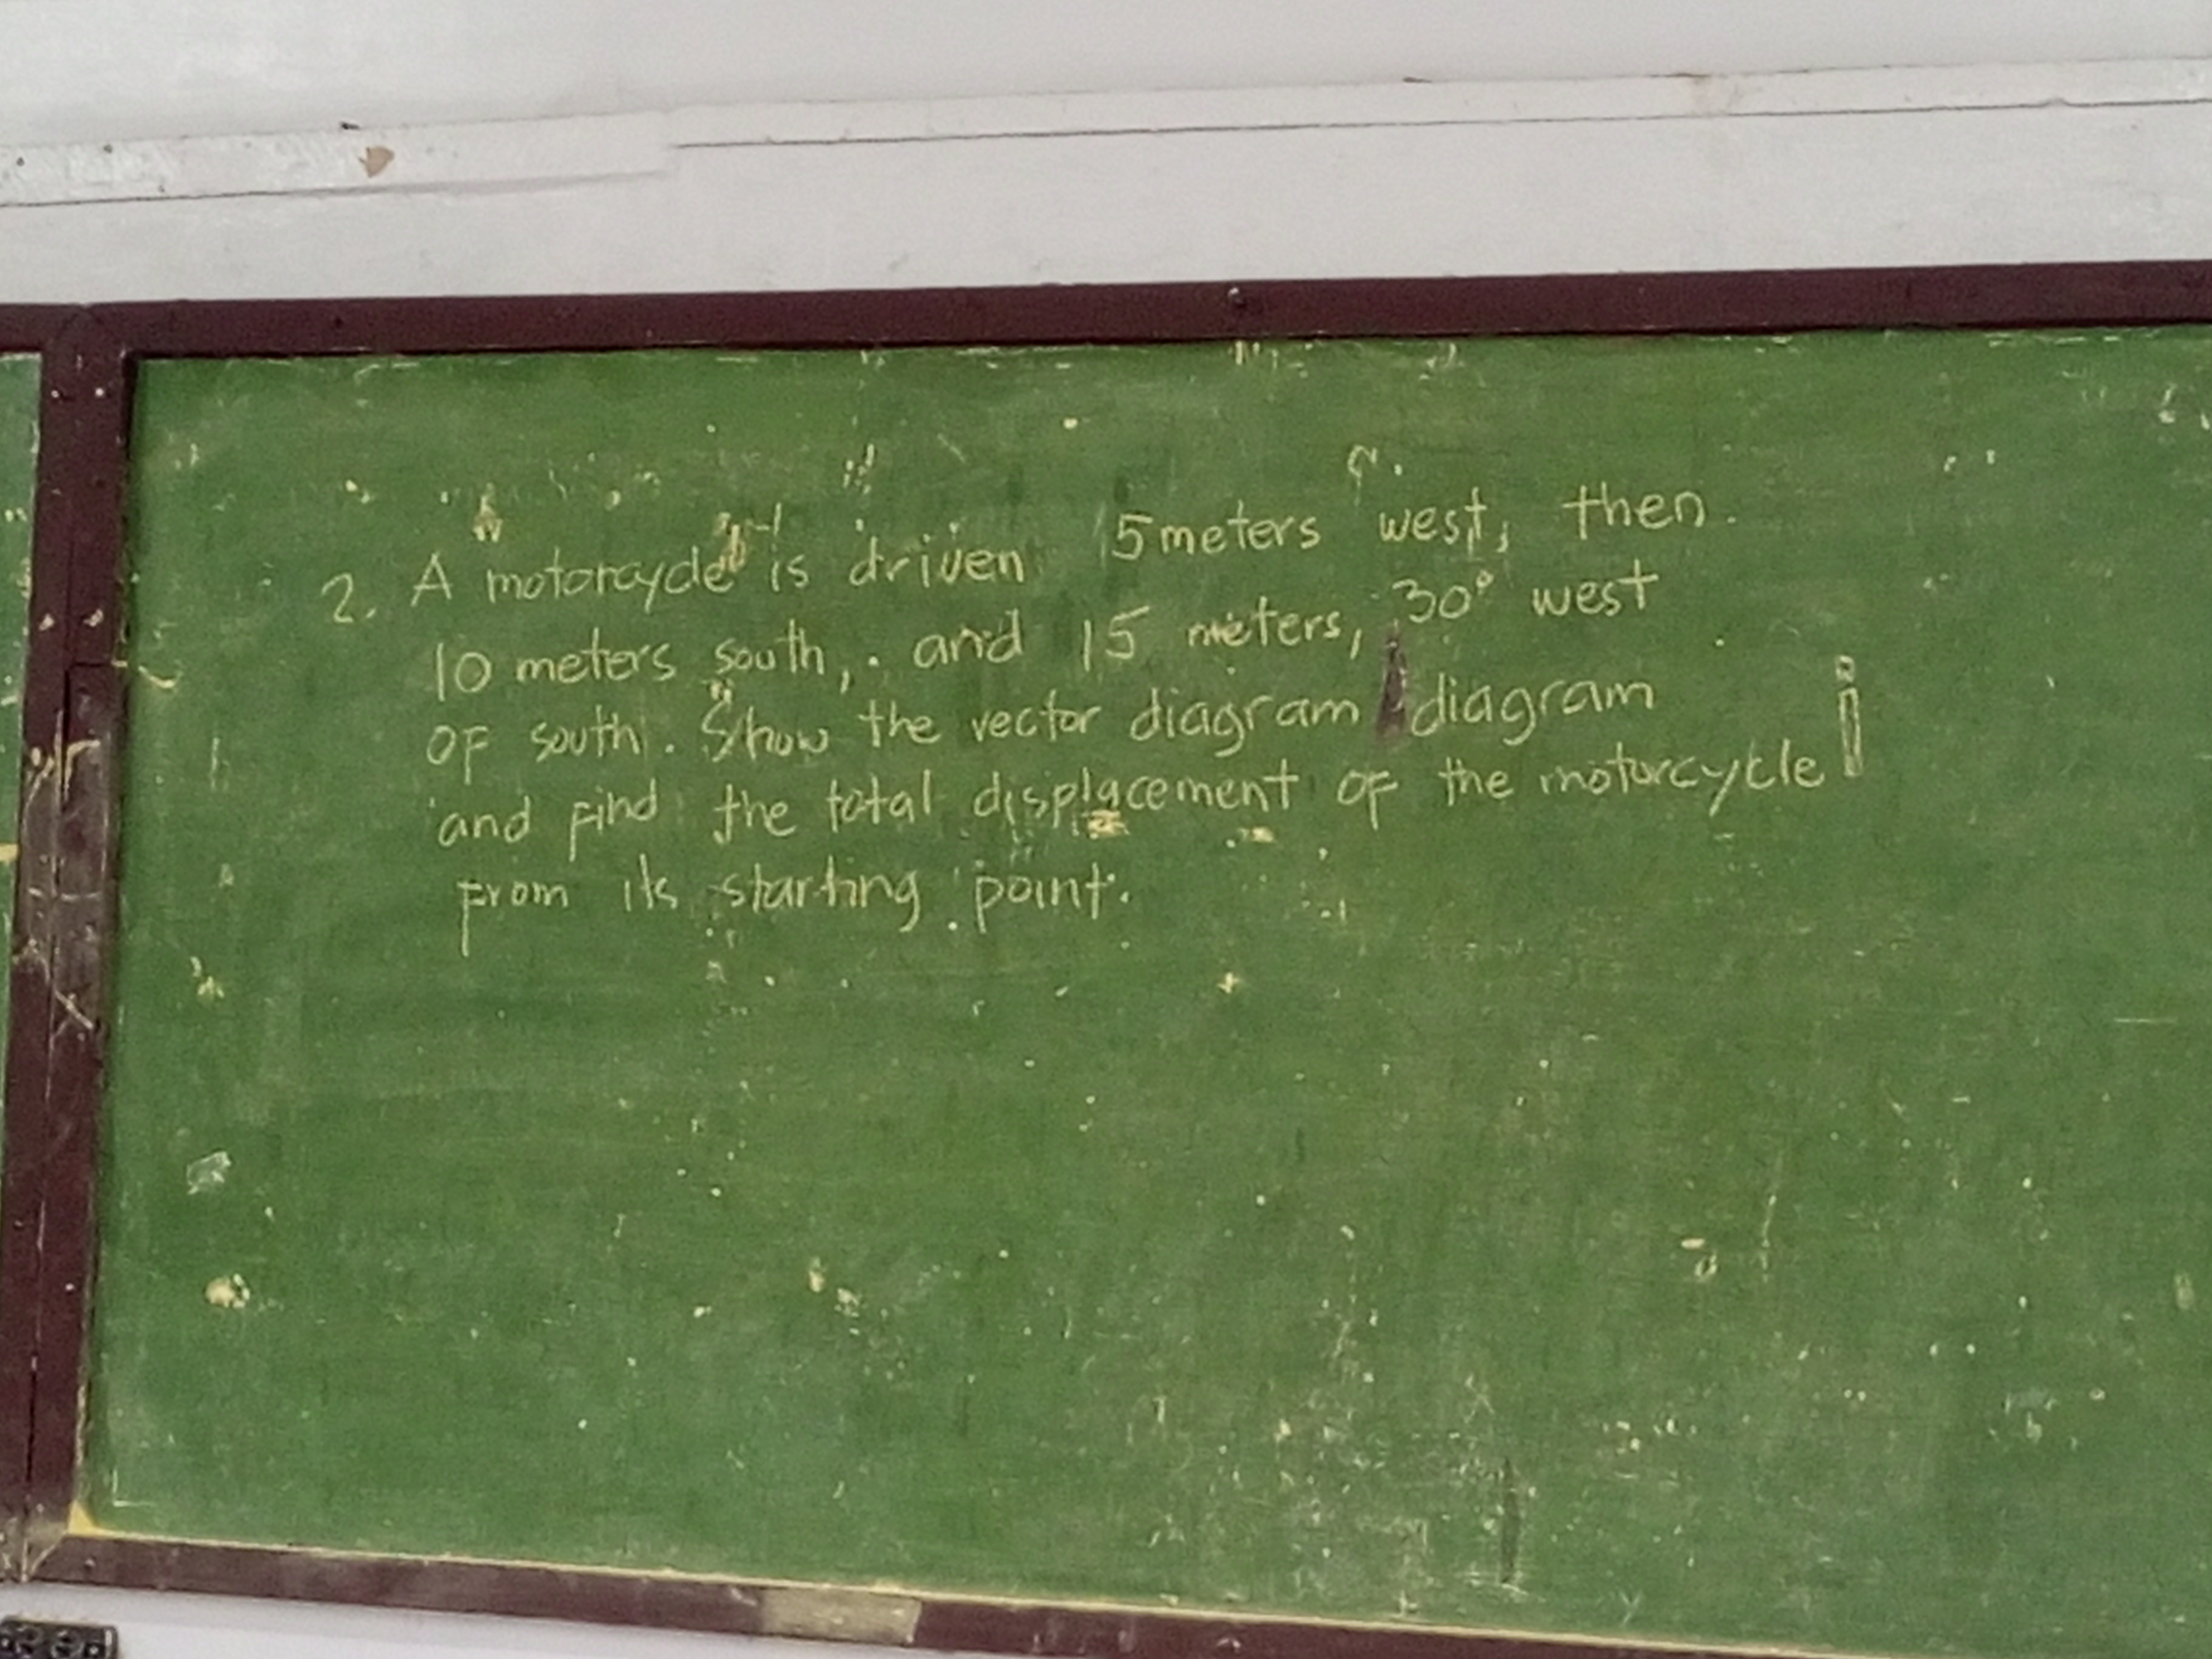 2. A motorcycle is driven 5 meters west, then
10 meters south, and 15 meters, 30° west
of south. Show the vector diagram diagram
and find the total displacement of the motorcycle
from its starting point.